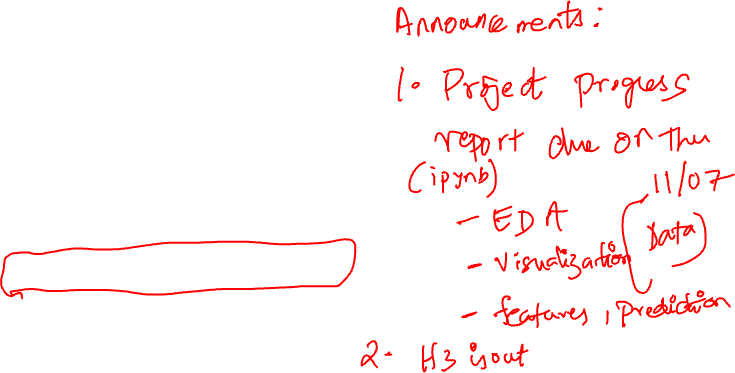 Announcements:
1. Project progress
report due on Thu
(ipynb) 11/07
- EDA
- Visualization (Data)
- features, Prediction
2. H3 is out